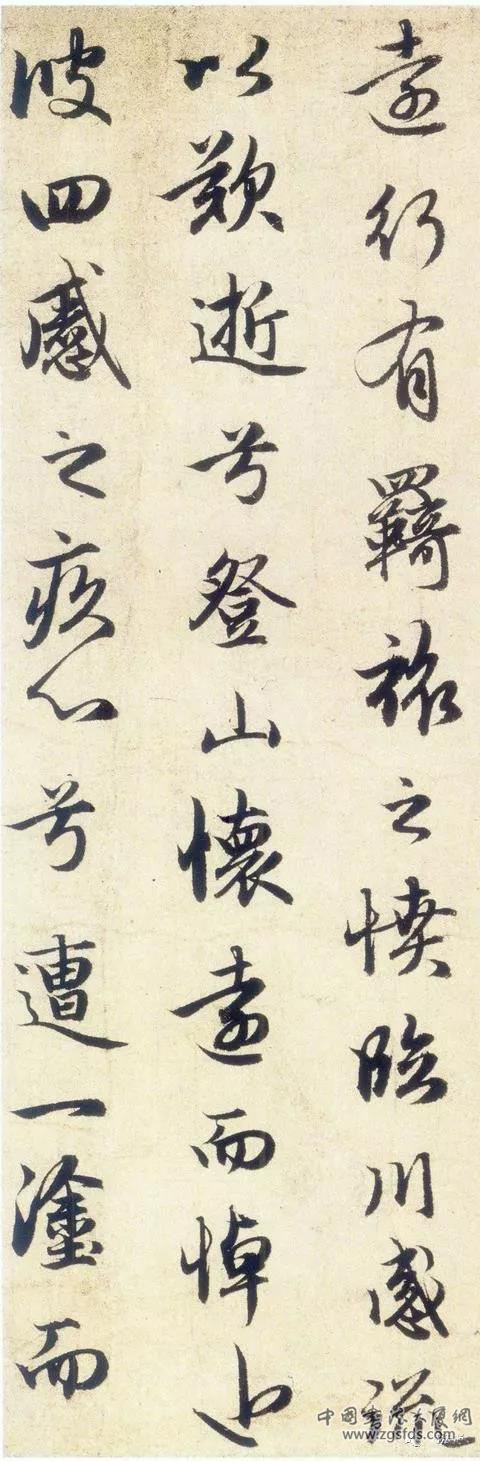 遠行有羈旅之憤臨川感流
以歎逝兮登山懷遠而悼近
彼四慼之疚心兮遭一塗而
中國書法大廈網
www.zgsfds.com